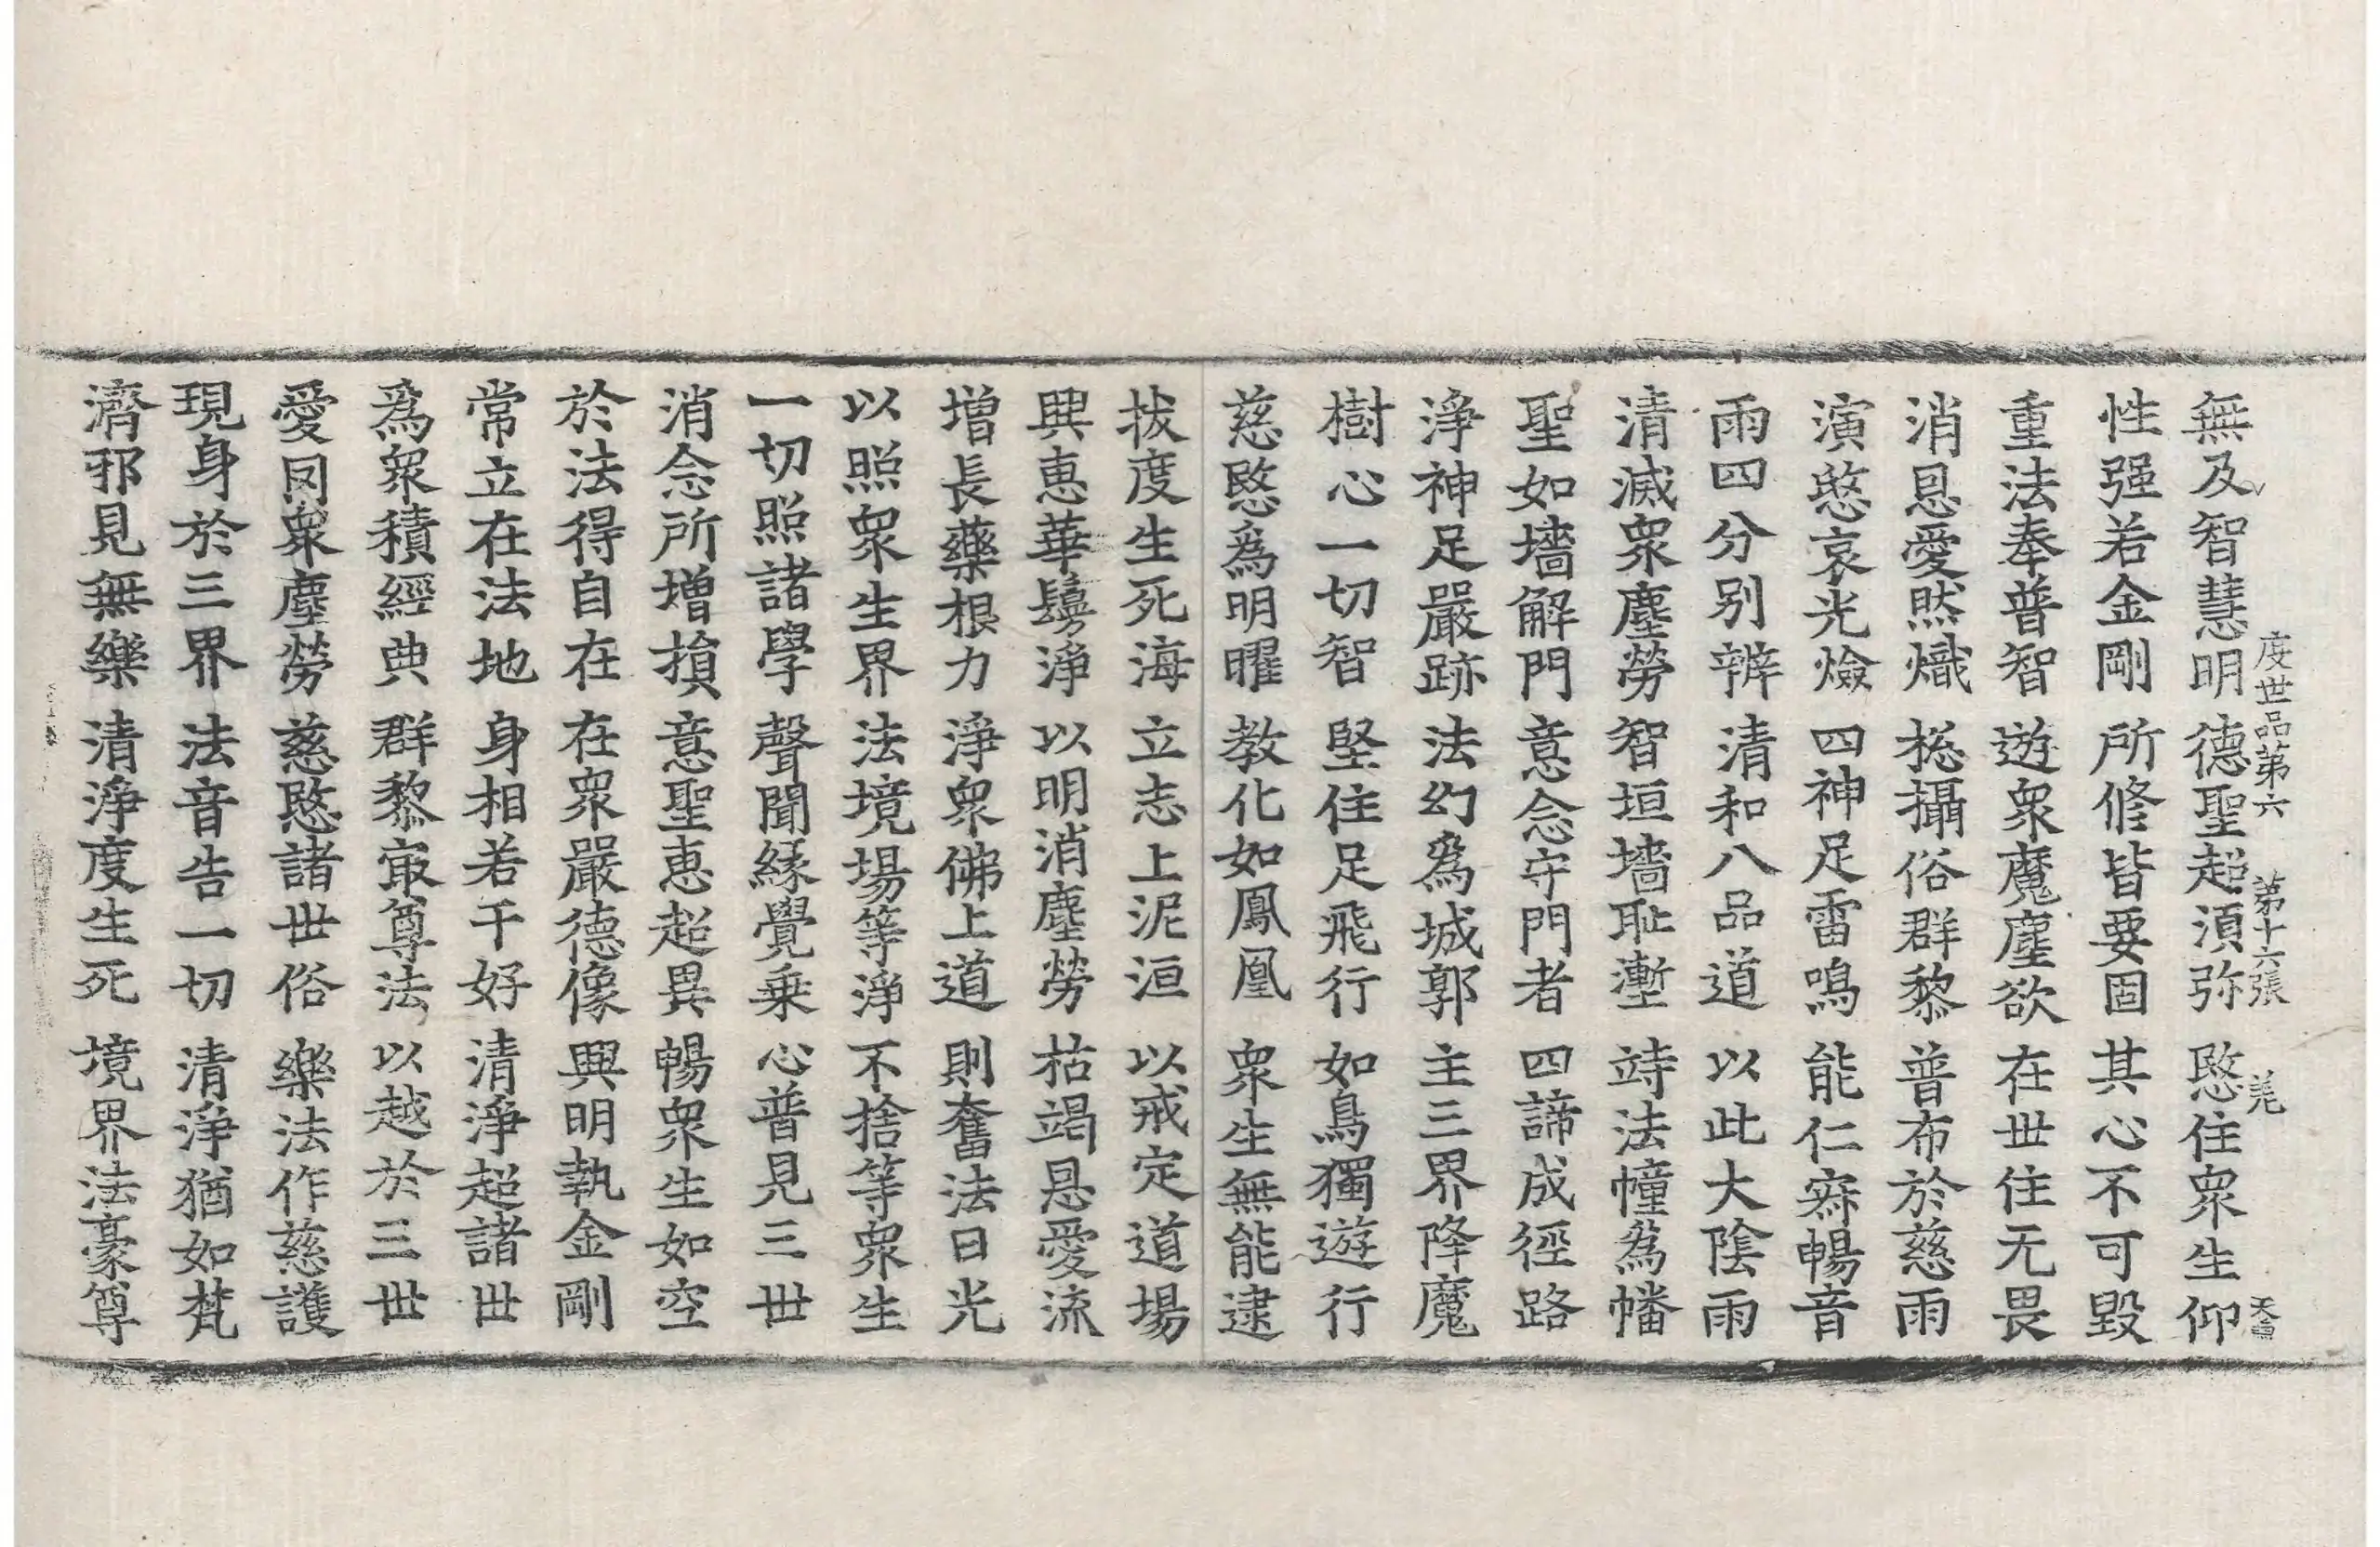 無及智慧明 德聖超須弥 愍住衆生仰
度世品第六 第十六張 羌
性强若金剛 所修皆要固 其心不可毀
重法奉普智 遊衆魔塵欲 在世住无畏
消恩愛熾 捴攝俗群黎 普布於慈雨
演愍哀光燄 四神足雷鳴 能仁寂暢音
雨四分别辨 清和八品道 以此大陰雨
清滅衆塵勞 智垣墻耻壍 法幢爲幡
聖如墻解門 意念守門者 四諦成徑路
淨神足嚴跡 法幻爲城郭 主三界降魔
樹心一切智 堅住足飛行 如鳥獨遊行
慈愍爲明曜 教化如鳳凰 衆生無能逮
拔度生死海 立志上泥洹 以戒定道場
興惠華鬘淨 以明消塵勞 枯竭恩愛流
增長藥根力 淨衆佛上道 則奮法日光
以照衆生界 法境場等淨 不捨等衆生
一切照諸學 聲聞緣覺乗 心普見三世
消念所增損 意聖惠超異 暢衆生如空
於法得自在 在衆嚴德像 興明執金剛
常立在法地 身相若干好 清淨超諸世
爲衆積經典 群黎㝡尊法 以越於三世
愛罔衆塵勞 慈愍諸世俗 樂法作慈護
現身於三界 法音告一切 清淨猶如梵
濟邪見無樂 清淨度生死 境界法豪尊